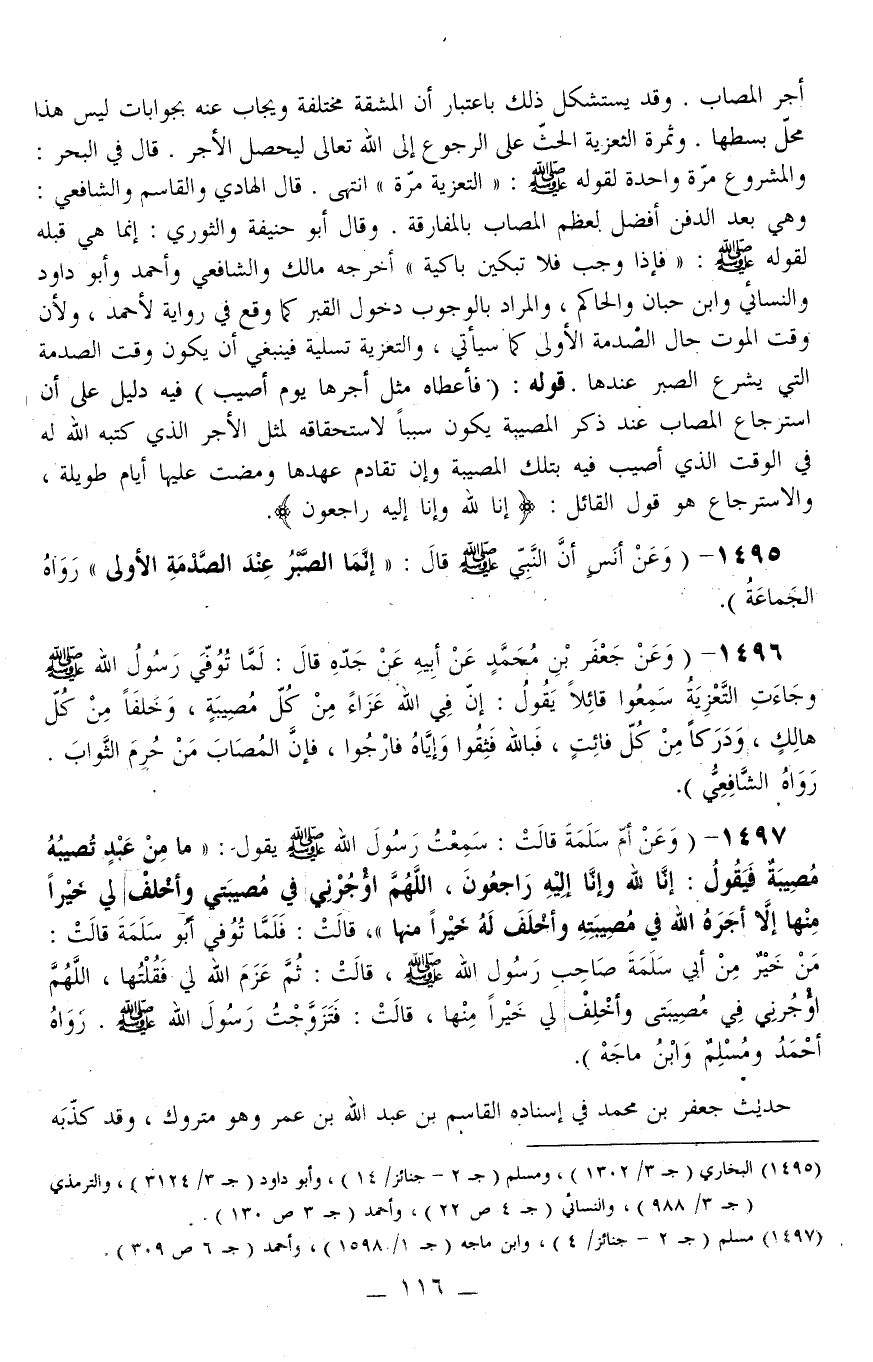 أجر المصاب . وقد يستشكل ذلك باعتبار أن المشقة مختلفة ويجاب عنه بجوابات ليس هذا
محلّ بسطها . وثمرة التعزية الحثّ على الرجوع إلى الله تعالى ليحصل الأجر . قال في البحر :
والمشروع مرّة واحدة لقوله ﷺ : « التعزية مرّة » انتهى . قال الهادي والقاسم والشافعي :
وهي بعد الدفن أفضل لعظم المصاب بالمفارقة . وقال أبو حنيفة والثوري : إنما هي قبله
لقوله ﷺ : « فإذا وجب فلا تبكين باكية » أخرجه مالك والشافعي وأحمد وأبو داود
والنسائي وابن حبان والحاكم ، والمراد بالوجوب دخول القبر كما وقع في رواية لأحمد ، ولأن
وقت الموت حال الصْدمة الأولى كما سيأتي ، والتعزية تسلية فينبغي أن يكون وقت الصدمة
التي يشرع الصبر عندها . قوله : ( فأعطاه مثل أجرها يوم أصيب ) فيه دليل على أن
استرجاع المصاب عند ذكر المصيبة يكون سبباً لاستحقاقه لمثل الأجر الذي كتبه الله له
في الوقت الذي أصيب فيه بتلك المصيبة وإن تقادم عهدها ومضت عليها أيام طويلة ،
والاسترجاع هو قول القائل : ﴿ إنا لله وإنا إليه راجعون ﴾.
١٤٩٥– ( وَعَنْ أنَسٍ أنَّ النَّبِيّ ﷺ قالَ : « إنَّمَا الصَّبْرُ عِنْدَ الصَّدْمَةِ الأولى » رَوَاهُ
الجَماعَةُ ).
١٤٩٦– ( وَعَنْ جَعْفَر بْنِ مُحَمَّدٍ عَنْ أبيهِ عَنْ جَدّهِ قالَ : لَمَّا تُوُفّيَ رَسُولُ الله ﷺ
وجَاءَتِ التَّعْزِيَةُ سَمِعُوا قائِلاً يَقُولُ : إنّ فِي الله عَزَاءً مِنْ كُلّ مُصِيبَةٍ ، وَخَلفَاً مِنْ كُلّ
هالِكٍ ، وَدَرَكاً مِنْ كُلّ فائِتٍ ، فَبالله فَثِقُوا وَإيَّاهُ فارْجُوا ، فإنَّ المُصَابَ مَنْ حُرِمَ الثَّوابَ .
رَوَاهُ الشَّافِعِيُّ ).
١٤٩٧– ( وَعَنْ أمّ سَلَمَةَ قالَتْ : سَمِعْتُ رَسُولَ الله ﷺ يقول : « ما مِنْ عَبْدٍ تُصيبُهُ
مُصِيبَةٌ فَيَقُولُ : إنَّا لله وإنَّا إلَيْهِ رَاجعُونَ ، اللَّهُمَّ اؤْجُرْنِي في مُصيبَتي وأخْلفْ لي خَيْراً
مِنْها إلَّا أجَرَهُ الله في مُصِيبَتِهِ وأخْلَفَ لَهُ خَيْراً منها »، قالَتْ : فَلَمَّا تُوُفي أبُو سَلَمَةَ قالَتْ :
مَنْ خَيْرٌ مِنْ أبي سَلَمَةَ صَاحِبِ رَسُول الله ﷺ ، قالَتْ : ثُمَّ عَزَمَ الله لي فَقُلْتُها ، اللَّهُمَّ
اؤْجُرني فِي مُصِيبَتى وأخْلِفْ لي خَيْراً مِنْها ، قالَتْ : فَتَزَوَّجْتُ رَسُولَ الله ﷺ . رَوَاهُ
أحْمَدُ ومُسْلِمٌ وَابْنُ ماجَهْ ).
حديث جعفر بن محمد في إسناده القاسم بن عبد الله بن عمر وهو متروك ، وقد كذّبَه
(١٤٩٥) البخاري ( جـ ٣/ ١٣٠٢ ) ، ومسلم ( جـ ٢ – جنائز/ ١٤ ) ، وأبو داود ( جـ ٣/ ٣١٢٤ ) ، والترمذي
( جـ ٣/ ٩٨٨ ) ، والنسائي ( جـ ٤ ص ٢٢ ) ، وأحمد ( جـ ٣ ص ١٣٠ ) .
(١٤٩٧) مسلم ( جـ ٢ – جنائز/ ٤ ) ، وابن ماجه ( جـ ١/ ١٥٩٨ ) ، وأحمد ( جـ ٦ ص ٣٠٩ ) .
– ١١٦ –